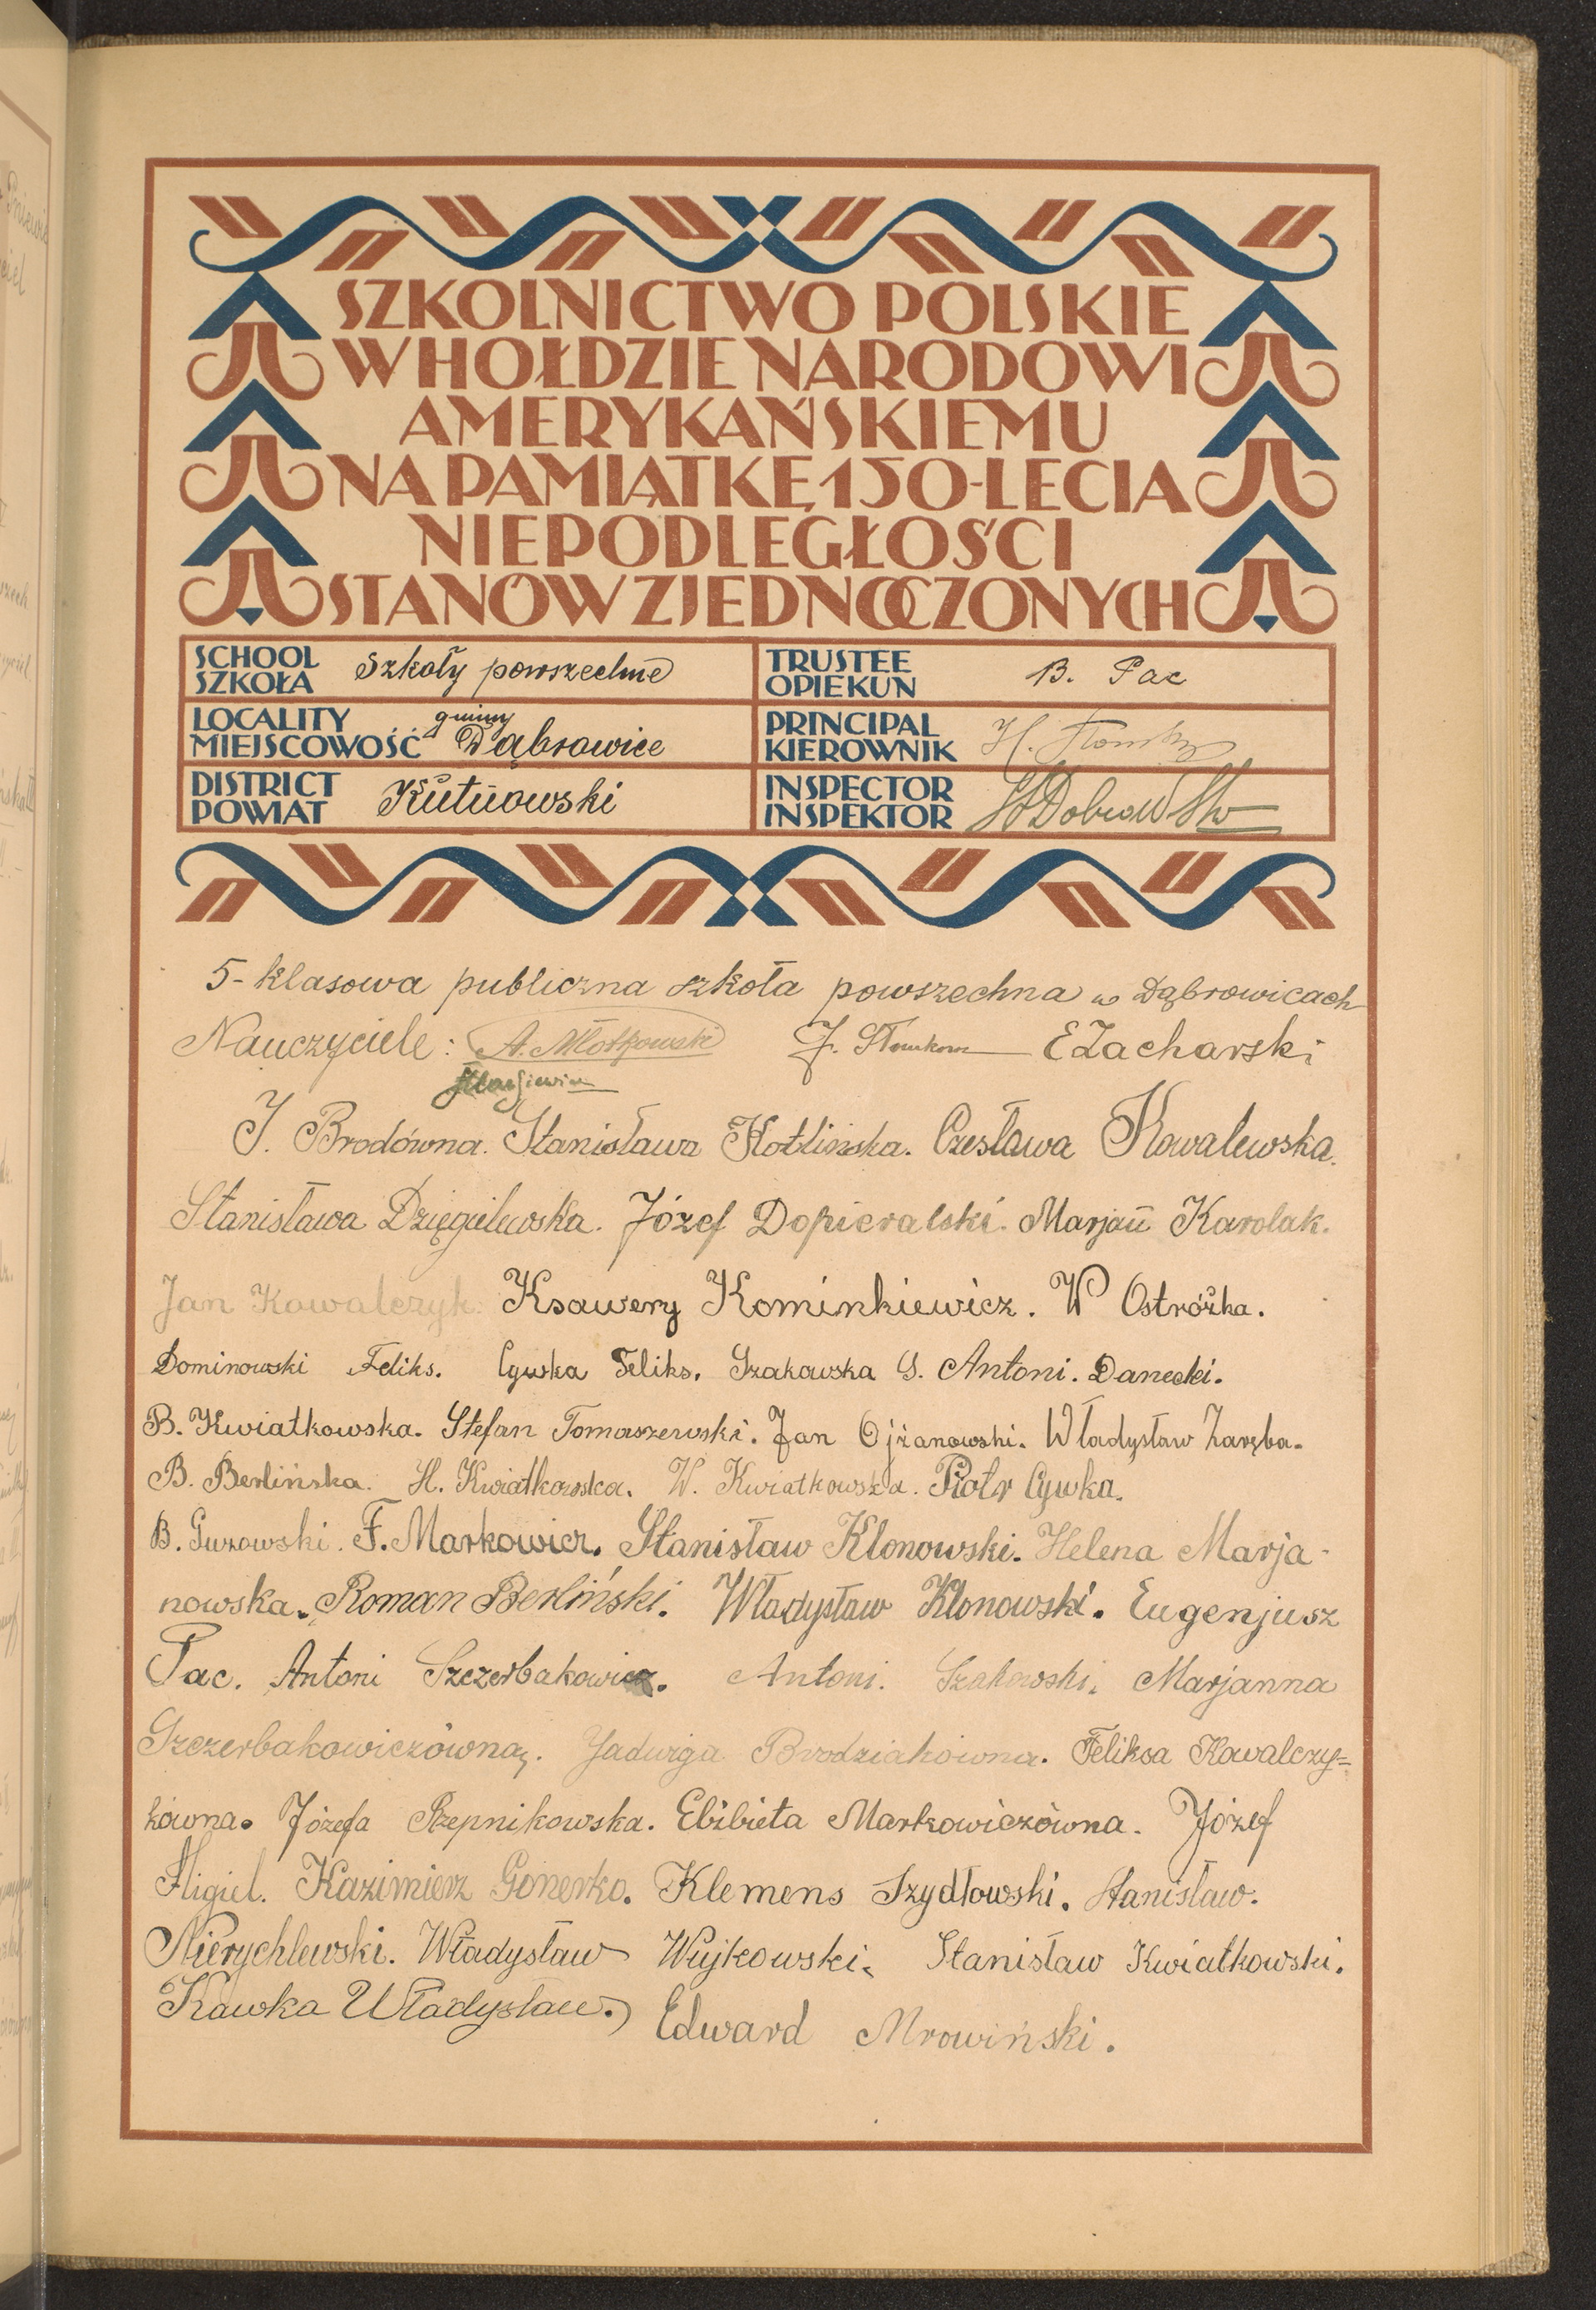 SZKOLNICTWO POLSKIE
W HOŁDZIE NARODOWI
AMERYKAŃSKIEMU
NA PAMIĄTKĘ 150-LECIA
NIEPODLEGŁOŚCI
STANÓW ZJEDNOCZONYCH
SCHOOL
SZKOŁA Szkoły powszechne
TRUSTEE
OPIEKUN B. Pac
LOCALITY
MIEJSCOWOŚĆ gminy Dąbrowice
PRINCIPAL
KIEROWNIK H.
DISTRICT
POWIAT Kutnowski
INSPECTOR
INSPEKTOR
5-klasowa publiczna szkoła powszechna w Dąbrowicach
Nauczyciele: A. Młotkowski J. E Zacharski
J. Brodówna. Stanisława Kotlińska. Czesława Kowalewska.
Stanisława Dzięgielewska. Józef Dopieralski. Marjan Karolak.
Jan Kowalczyk. Ksawery Kominkiewicz. W Ostróżka.
Dominowski Feliks. Cywka Feliks. Szakowska S. Antoni. Danecki.
B. Kwiatkowska. Stefan Tomaszewski. Jan Ojżanowski. Władysław Zaręba.
B. Berlińska. H. Kwiatkowska. W. Kwiatkowska. Piotr Cywka.
B. Guzowski. F. Markowicz. Stanisław Klonowski. Helena Marja-
nowska. Roman Berliński. Władysław Klonowski. Eugenjusz
Pac. Antoni Szczerbakowicz. Antoni. Szakowski. Marjanna
Szczerbakowiczówna. Jadwiga Brodziakówna. Feliksa Kowalczy=
kówna. Józefa Rzepnikowska. Elżbieta Markowiczówna. Józef
Migiel. Kazimierz Gonerko. Klemens Szydłowski. Stanisław.
Nierychlewski. Władysław Wujkowski. Stanisław Kwiatkowski.
Kawka Władysław. Edward Mrowiński.